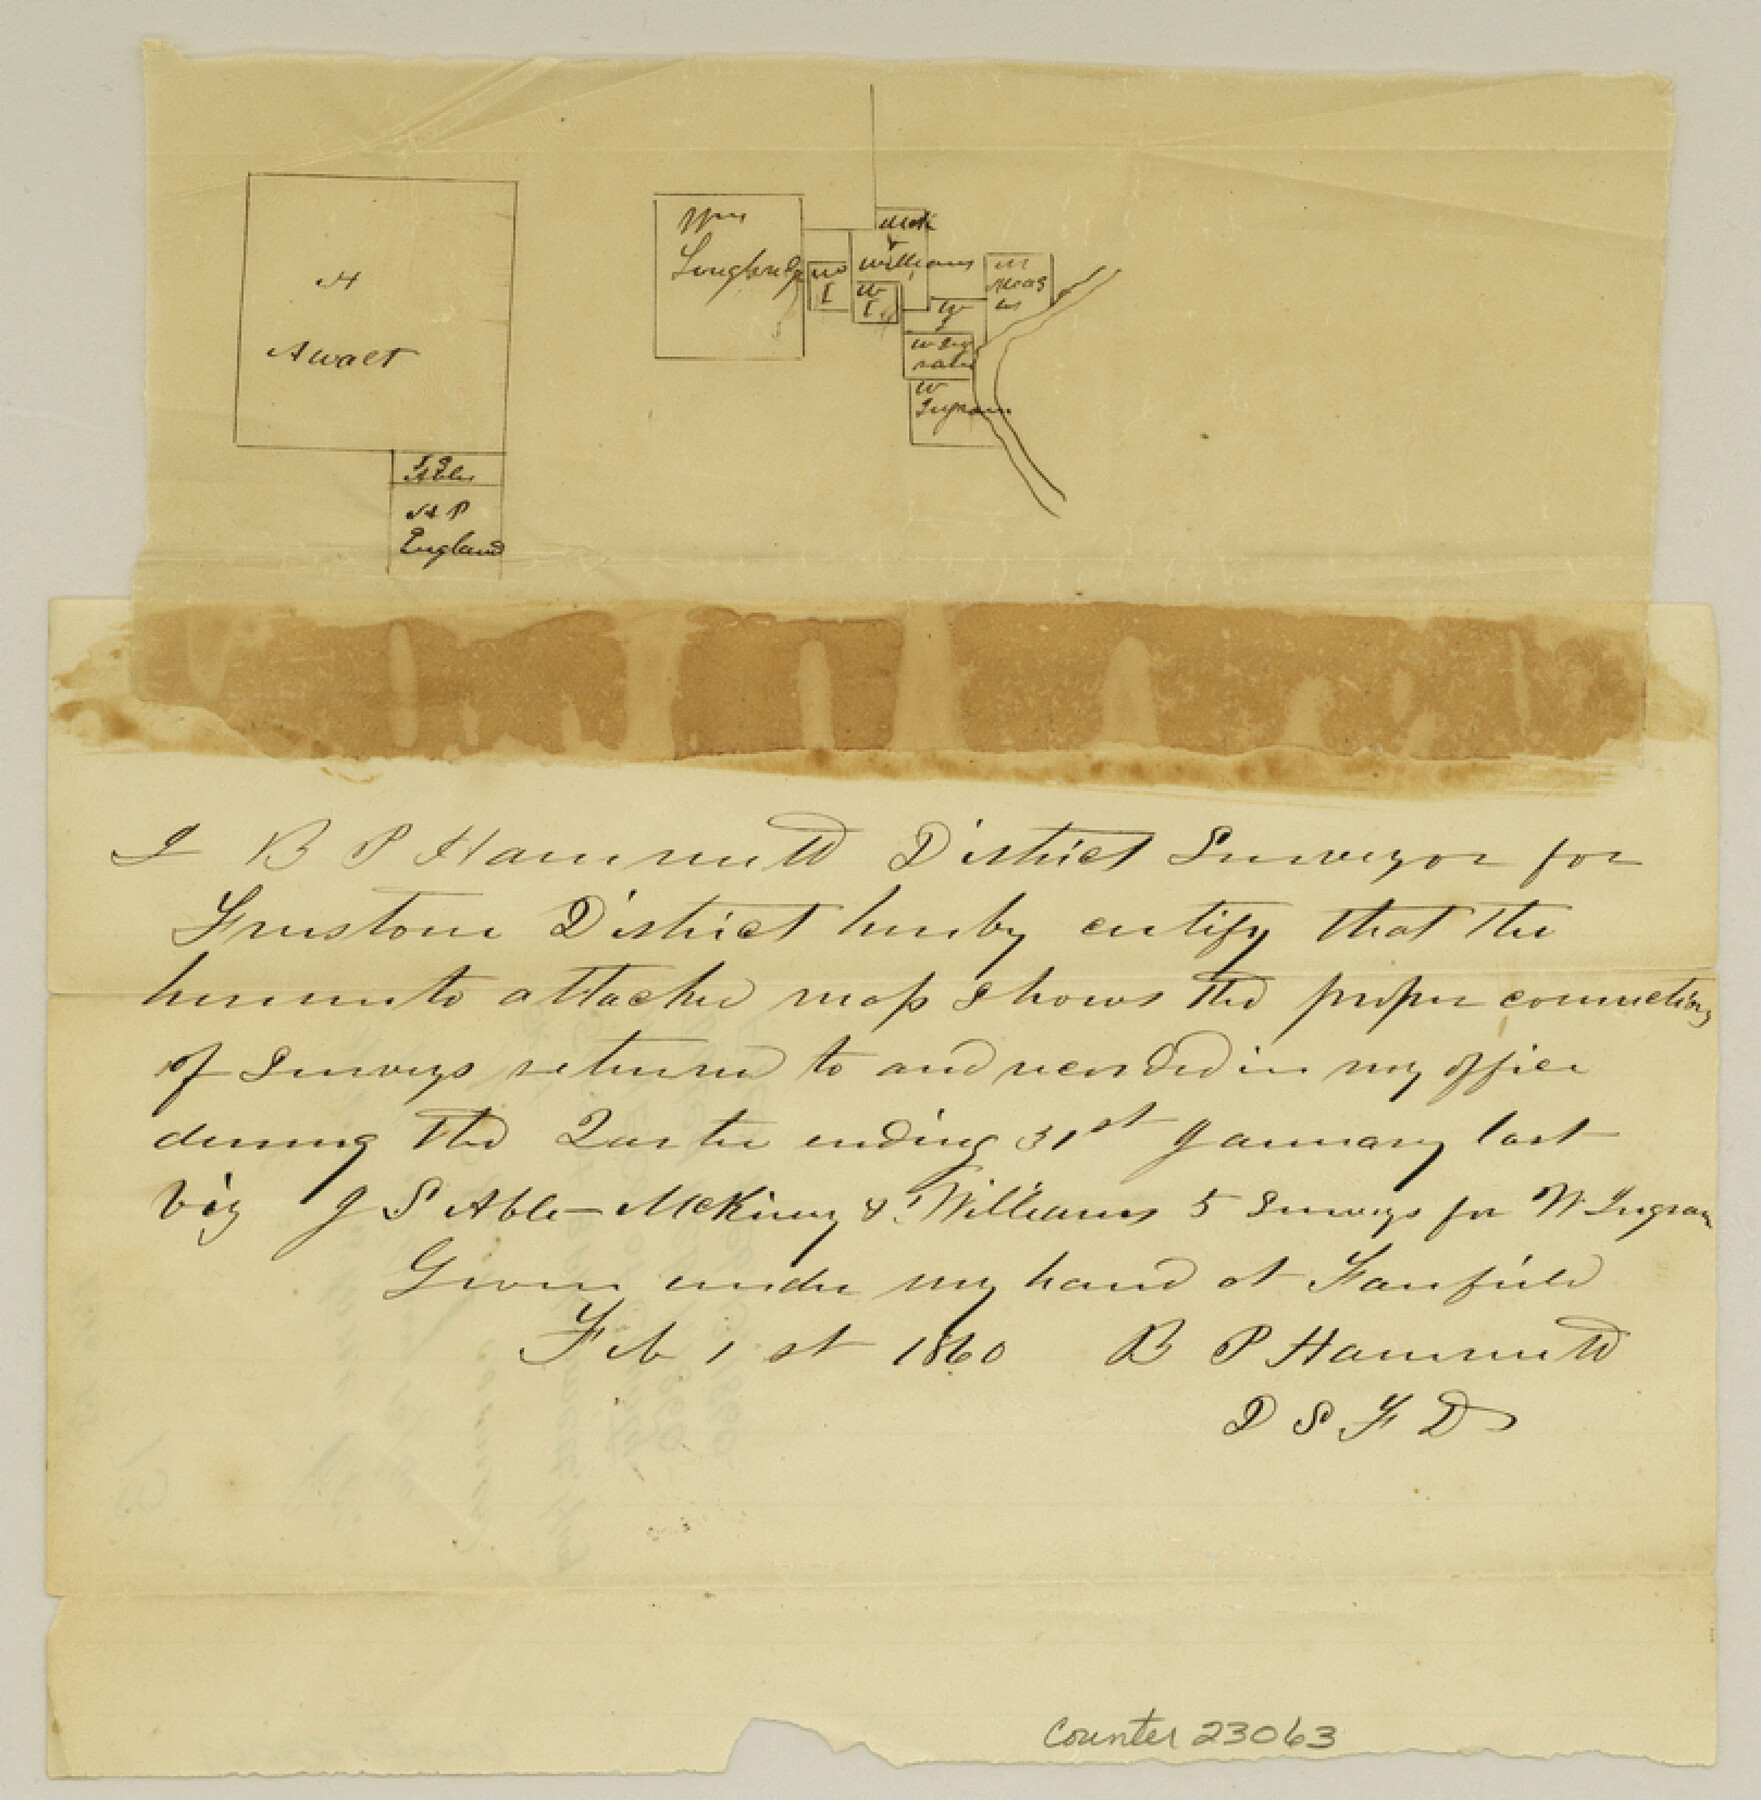 H
Awalt
J S
Able
H P
England
Wm
Longbridge
W
I
McK
&
Williams
W
I
M
W
W Ing
ram
W
Ingram
I B P Hammett District Surveyor for
Freestone District hereby certify that the
hereunto attached map shows the proper connections
of Surveys returned to and recorded in my office
during the Quarter ending 31st January last
Viz J S Able — McKinny & Williams 5 Surveys for W Ingram
Given under my hand at Fairfield
Feb 1st 1860 B P Hammett
D S F D
Counter 23063